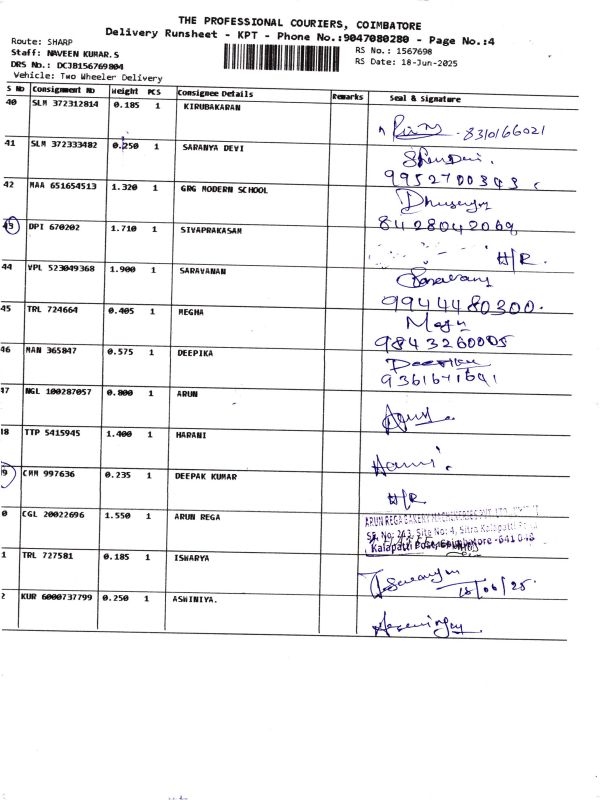 THE PROFESSIONAL COURIERS, COIMBATORE
Delivery Runsheet - KPT - Phone No.:9047080280 - Page No.:4
Route: SHARP
RS No.: 1567698
Staff: NAVEEN KUMAR.S
RS Date: 18-Jun-2025
DRS No.: DCJB156769804
Vehicle: Two Wheeler Delivery
S No Consignment No Weight PCS Consignee Details Remarks Seal & Signature
40 SLM 372312814 0.185 1 KIRUBAKARAN
8310166021
41 SLM 372333482 0.250 1 SARANYA DEVI
9952700343
42 MAA 651654513 1.320 1 GRG MODERN SCHOOL
8428042069
43 DPI 670202 1.710 1 SIVAPRAKASAM
H/R.
44 VPL 523049368 1.900 1 SARAVANAN
9944480300.
45 TRL 724664 0.405 1 MEGHA
9843260005
46 MAN 365847 0.575 1 DEEPIKA
Deepika
47 NGL 100287057 0.800 1 ARUN
Arun
18 TTP 5415945 1.400 1 HARANI
Harani.
9 CMM 997636 0.235 1 DEEPAK KUMAR
H/R
0 CGL 20022696 1.550 1 ARUN REGA
ARUN REGA BAKERY
SF. No: 213, Site No: 4, Sitra Kalapatti Road
Kalapatti Post, Coimbatore - 641 048
1 TRL 727581 0.185 1 ISHARYA
18/06/25.
2 KUR 6000737799 0.250 1 ASWINIYA.